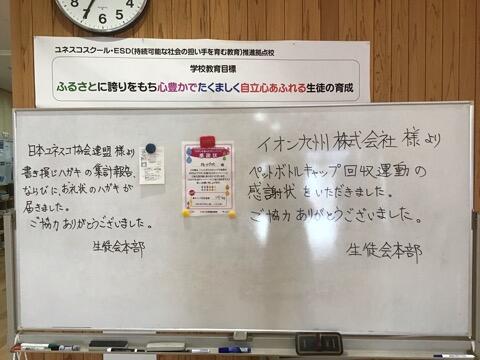 ユネスコスクール・ESD(持続可能な社会の担い手を育む教育)推進拠点校
学校教育目標
ふるさとに誇りをもち心豊かでたくましく自立心あふれる生徒の育成
日本ユネスコ協会連盟 様より
書き損じハガキの集計報告、
ならびに、お礼状のハガキが
届きました。
ご協力 ありがとうございました。
生徒会本部
感謝状
イオン九州 株式会社 様より
ペットボトルキャップ回収運動の
感謝状をいただきました。
ご協力 ありがとうございました。
生徒会本部